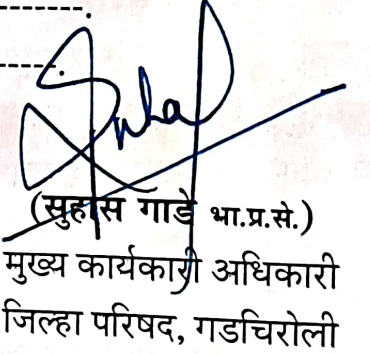 (सुहास गाडे भा.प्र.से.)
मुख्य कार्यकारी अधिकारी
जिल्हा परिषद, गडचिरोली